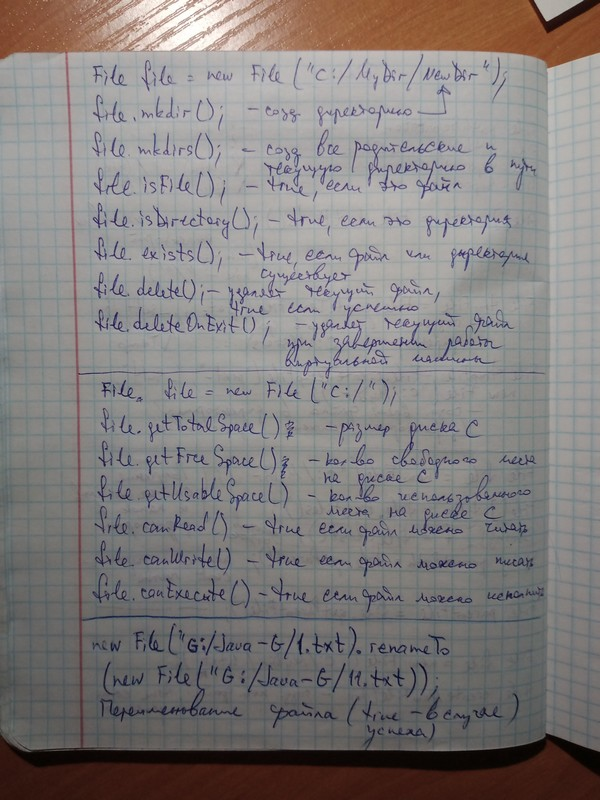 File file = new File ("C:/MyDir/NewDir");
file.mkdir(); - созд директорию
file.mkdirs(); - созд все родительские и
текущую директорию в пути
file.isFile(); - true, если это файл
file.isDirectory(); - true, если это директория
file.exists(); - true, если файл или директория
существует
file.delete(); - удаляет текущий файл,
true если успешно
file.deleteOnExit(); - удаляет текущий файл
при завершении работы
виртуальной машины
File file = new File ("C:/");
file.getTotalSpace(); - размер диска C
file.getFreeSpace(); - кол-во свободного места
на диске C
file getUsableSpace() - кол-во использованного
места на диске C
file.canRead() - true если файл можно читать
file.canWrite() - true если файл можно писать
file.canExecute() - true если файл можно исполнить
new File("G:/Java-G/1.txt).renameTo
(new File("G:/Java-G/11.txt));
Переименование файла (true - в случае)
успеха)